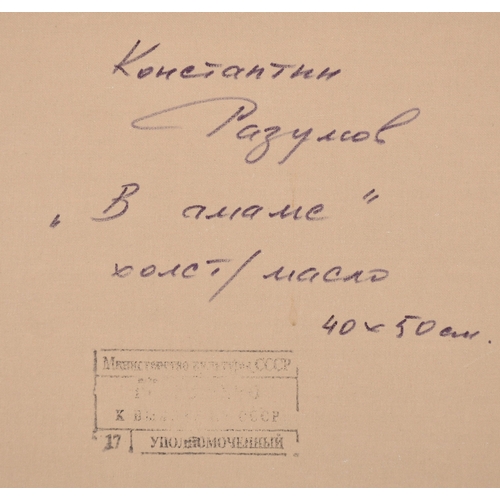 Константин
Разумов
„В гмаме"
холст/масло
40×50см.
Министерство культуры СССР
К СССР
17 УПОЛНОМОЧЕННЫЙ